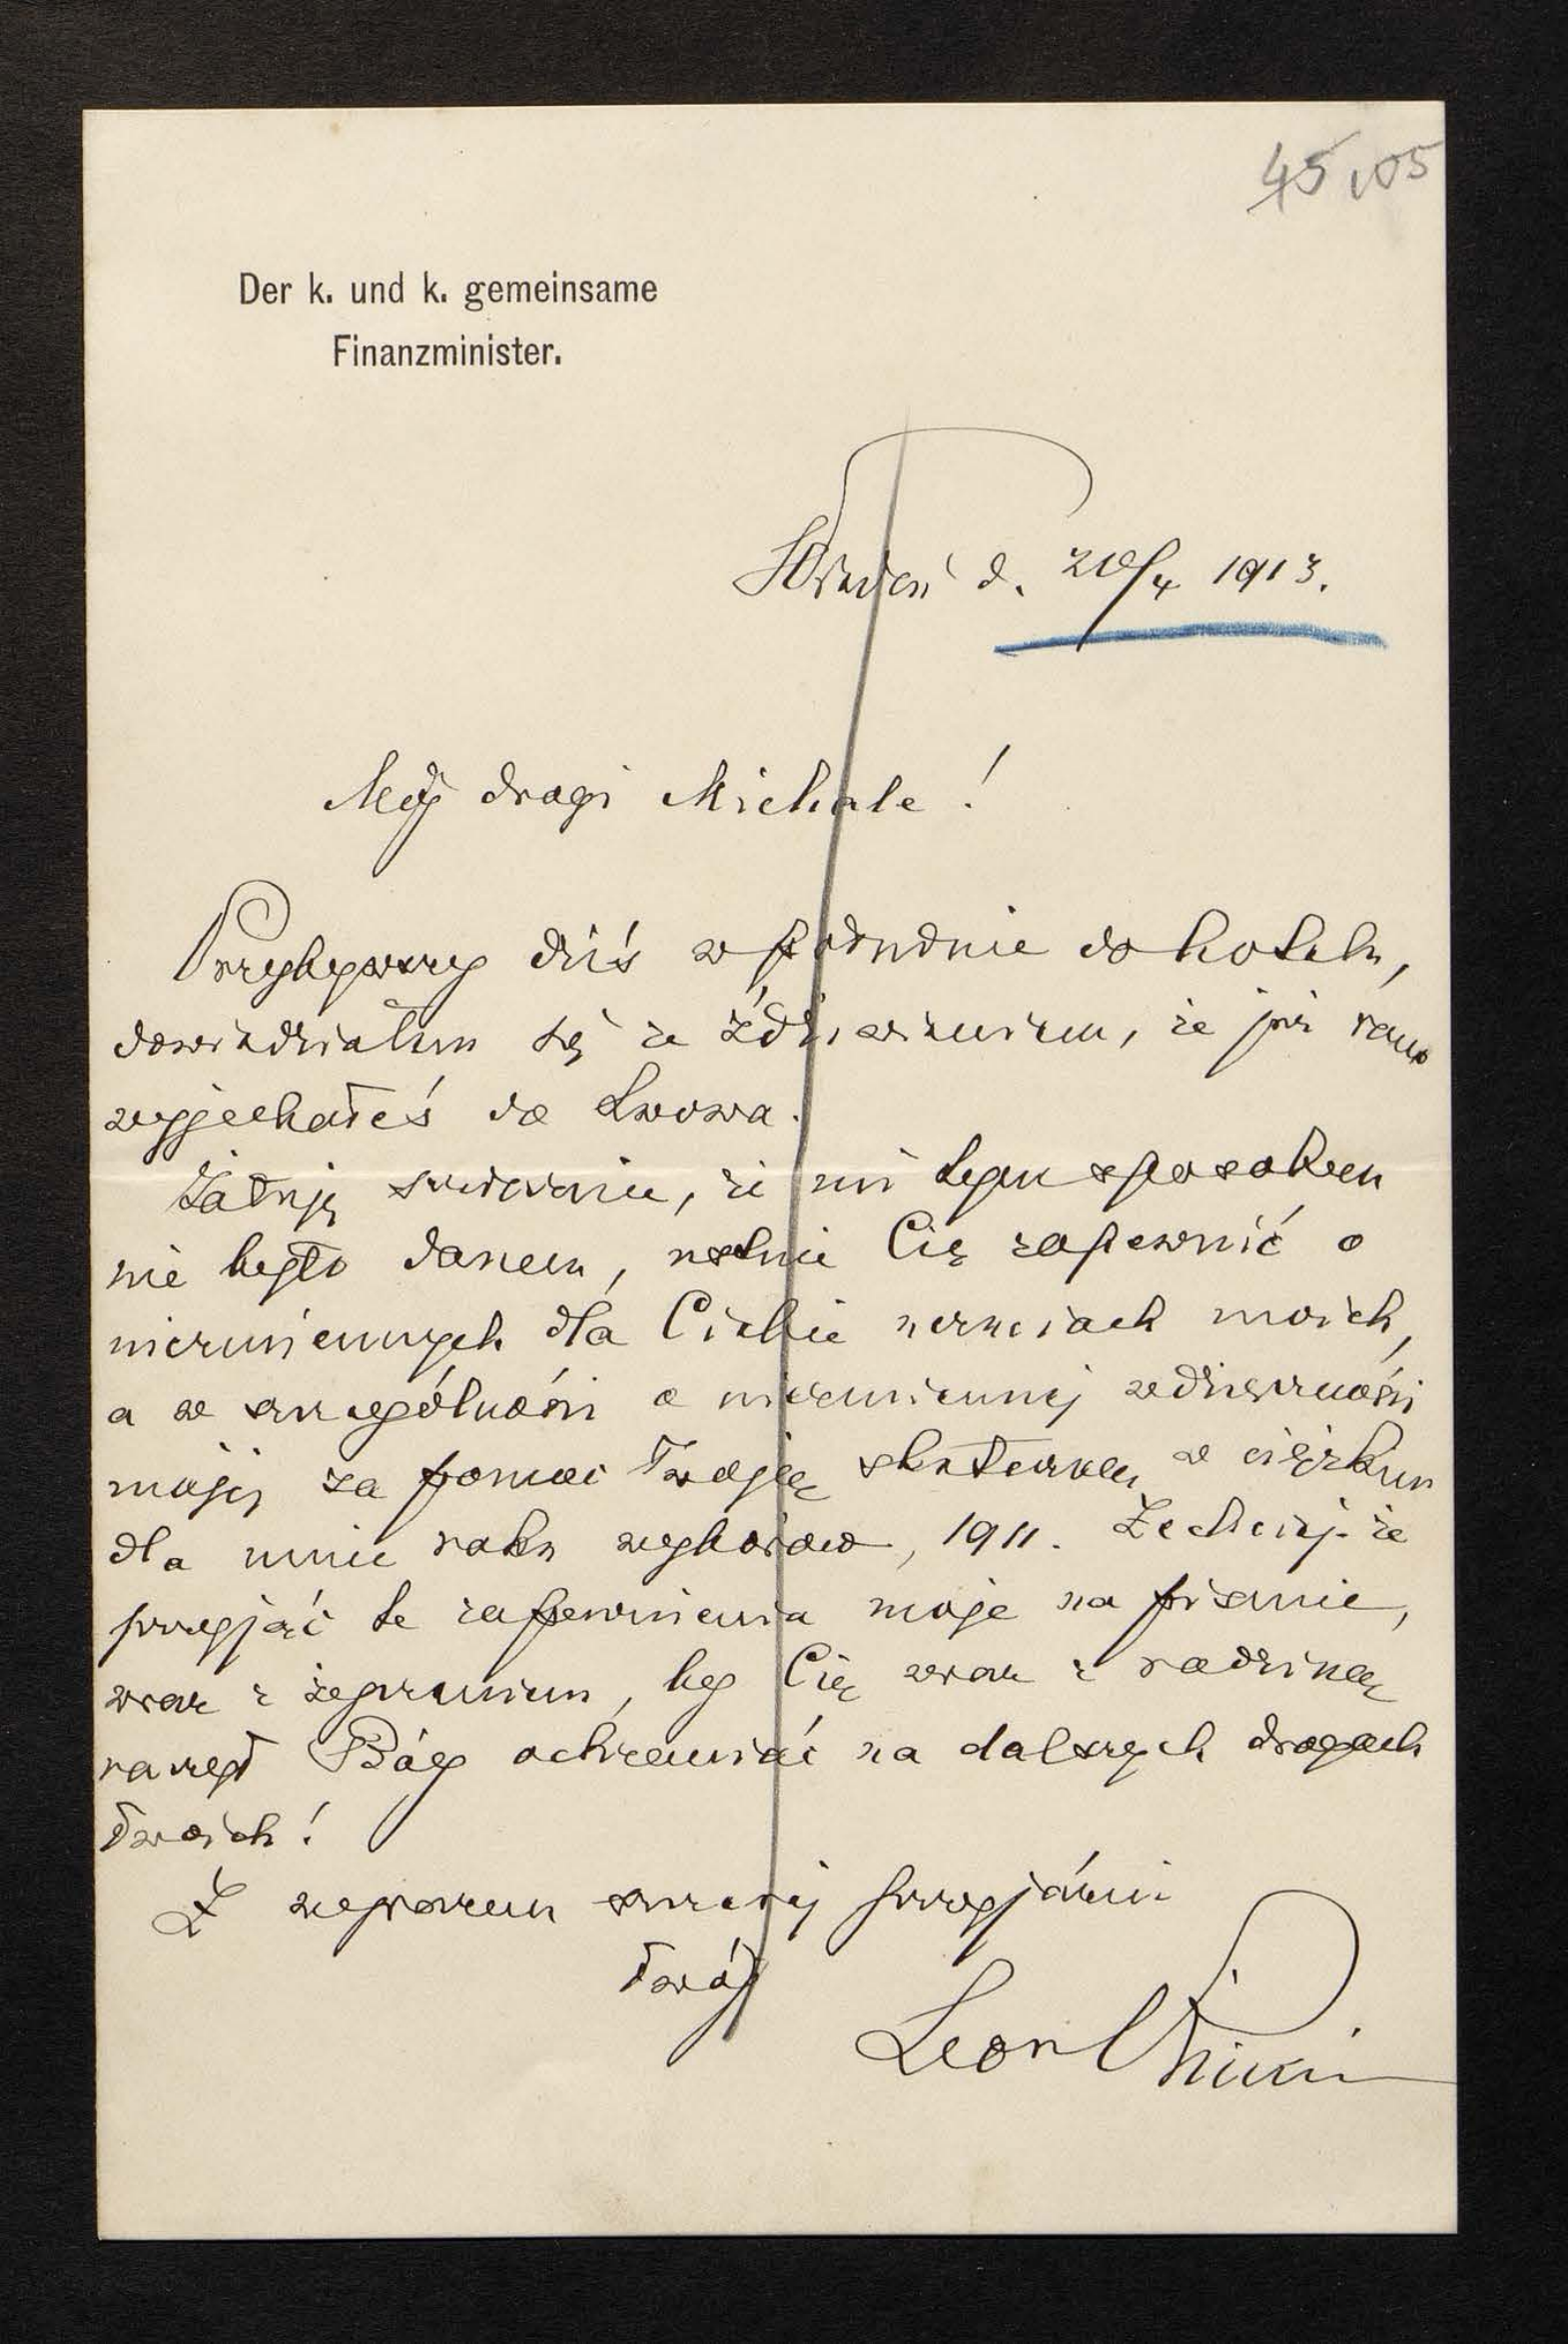 45,05
Der k. und k. gemeinsame
Finanzminister.
Wiedeń d. 20/4 1913.
Mój drogi Michale!
Przybywszy dziś w południe do hotelu,
dowiedziałem się ze zdziwieniem, że już rano
wyjechałeś do Lwowa.
Żałuję szczerze, że mi tym sposobem
nie było danem, ustnie Cię zapewnić o
niezmiennych dla Ciebie uczuciach moich,
a w szczególności o niezmiennej wdzięczności
mojej za pomoc Twoję skuteczną w ciężkim
dla mnie roku wyborów, 1911. Zechciej-że
przyjąć te zapewnienia moje na piśmie,
wraz z życzeniem, by Cię wraz z rodziną
raczył Bóg ochraniać na dalszych drogach
Twoich!
Z wyrazem szczerej przyjaźni
Twój
Leon Biliński